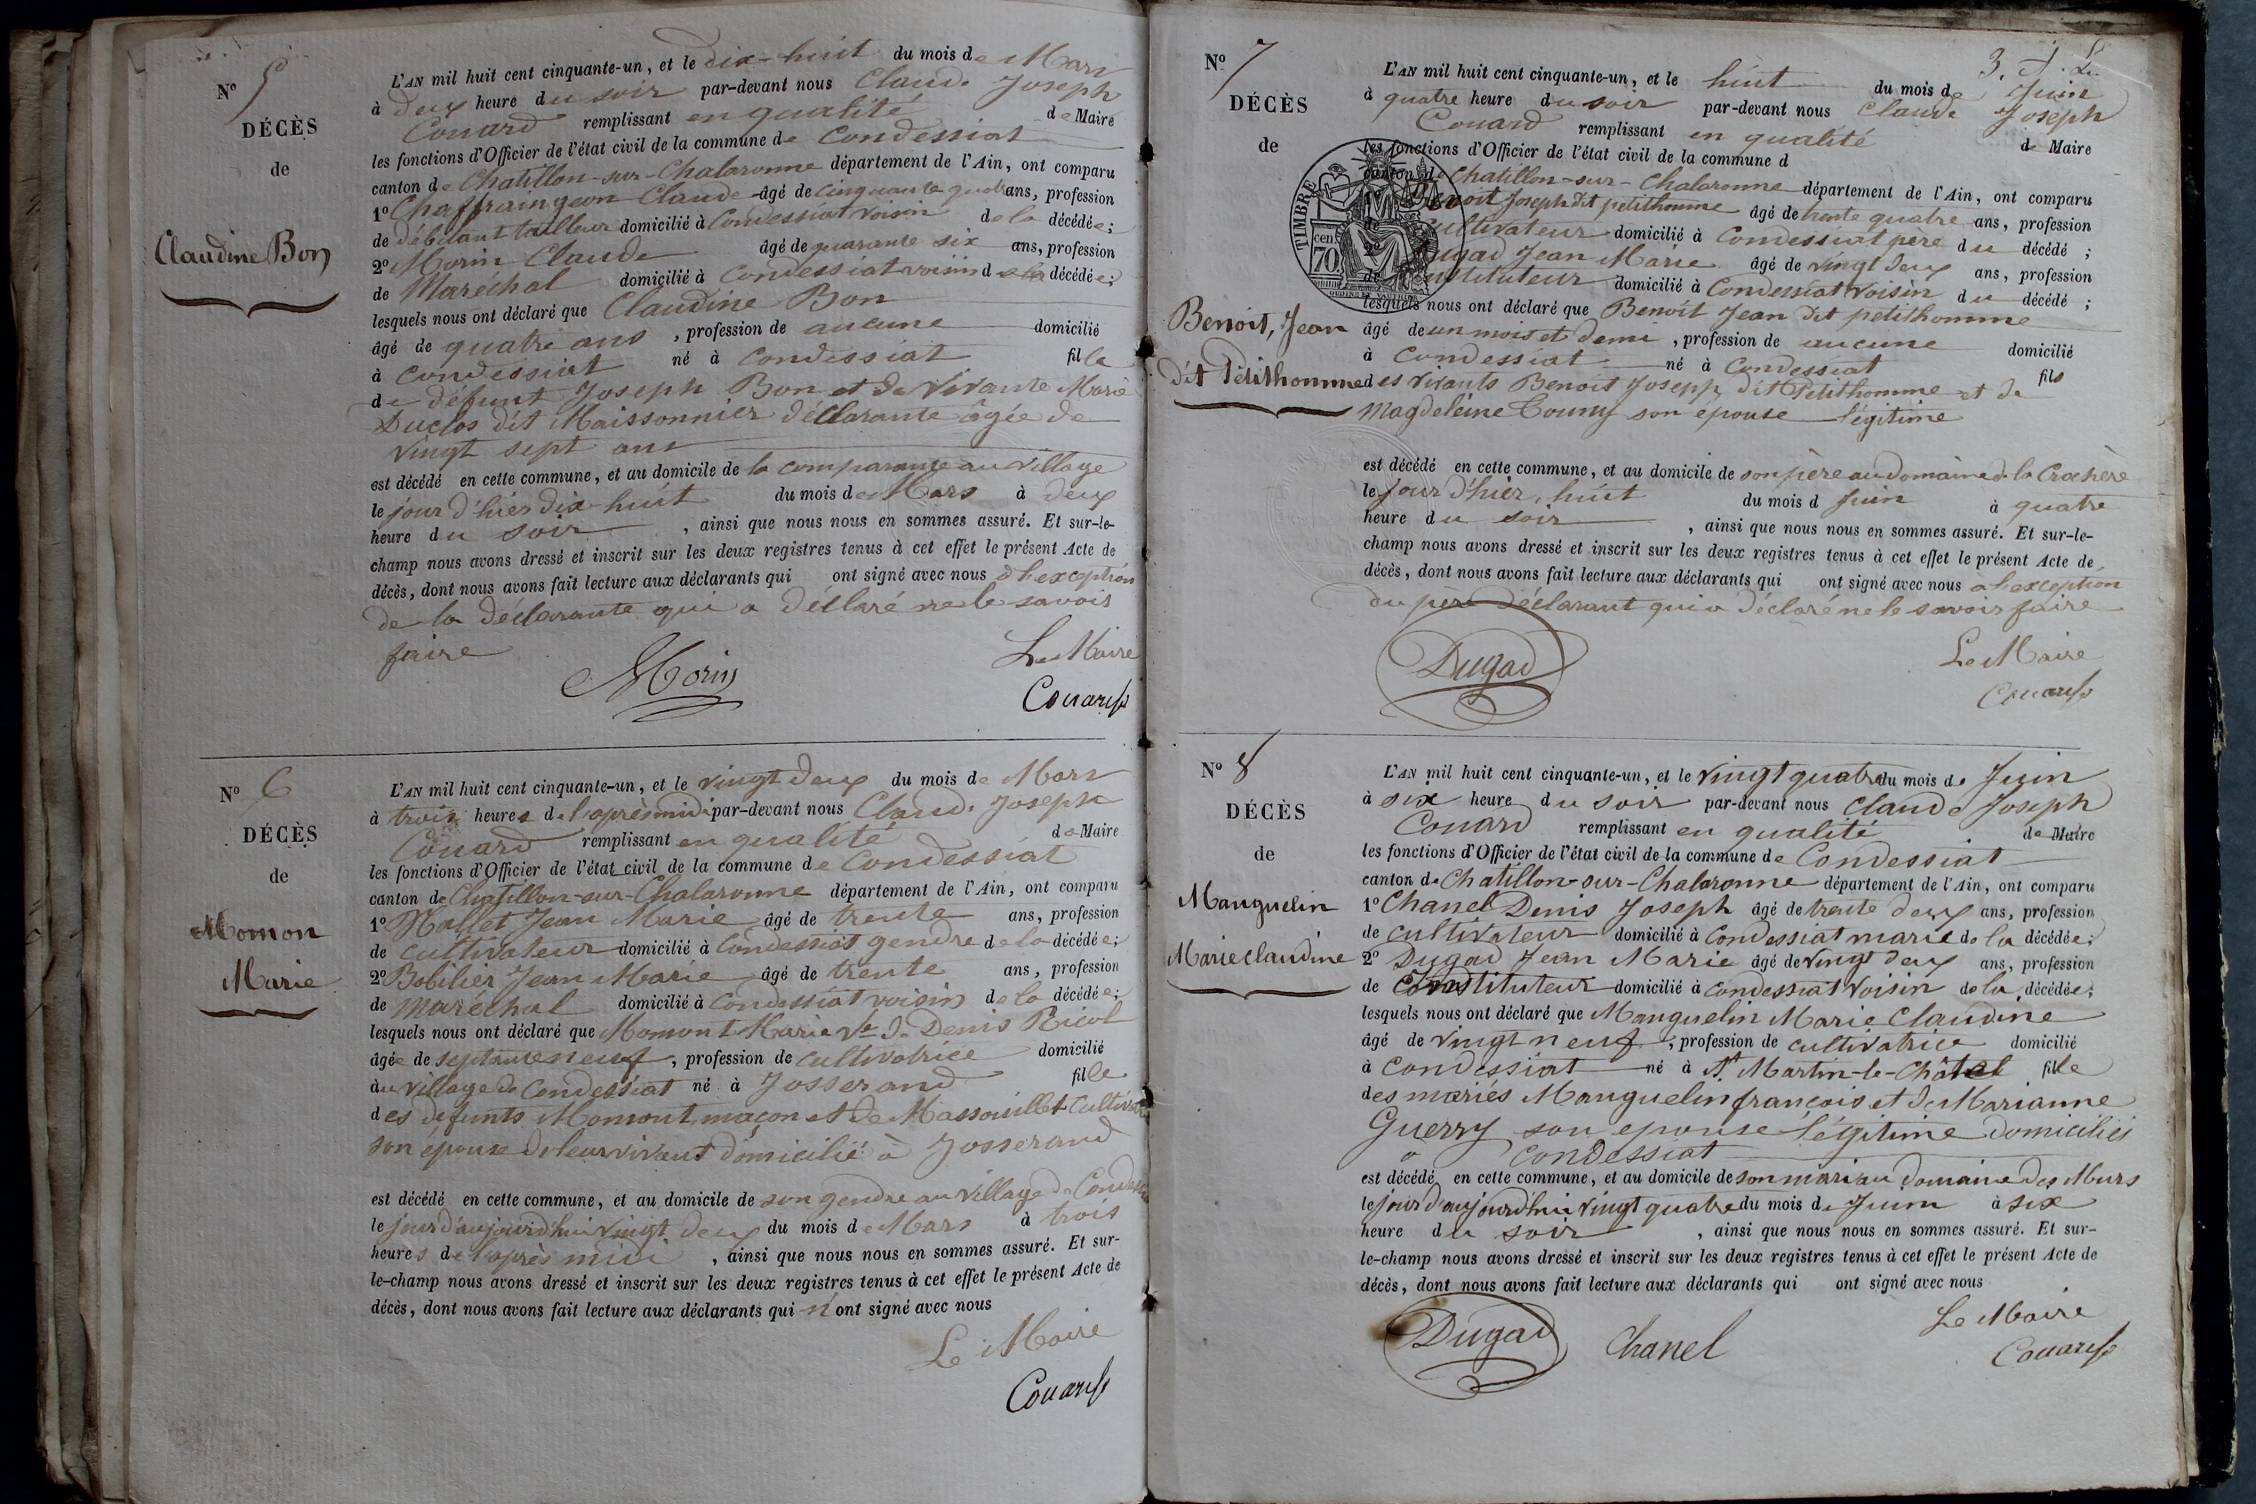 Nº 5
DÉCÈS
de
Claudine Bon
L'AN mil huit cent cinquante-un, et le dix-huit du mois de Mars
à deux heure du soir par-devant nous Claude Joseph
Couard remplissant en qualité de Maire
les fonctions d'Officier de l'état civil de la commune de Condessiat
canton de Chatillon-sur-Chalaronne département de l'Ain, ont comparu
1º Chaffraingeon Claude âgé de cinquante quatre ans, profession
de débitant tailleur domicilié à Condessiat voisin de la décédée;
2º Morin Claude âgé de quarante six ans, profession
de Maréchal domicilié à Condessiat voisin de la décédée;
lesquels nous ont déclaré que Claudine Bon
âgé de quatre ans, profession de aucune domicilié
à Condessiat né à Condessiat fille
de défunt Joseph Bon et de vivante Marie
Duclos dit Maissonnier déclarante âgée de
vingt sept ans
est décédé en cette commune, et au domicile de la comparante au village
le jour d'hier dix-huit du mois de Mars à deux
heure du soir, ainsi que nous nous en sommes assuré. Et sur-le-
champ nous avons dressé et inscrit sur les deux registres tenus à cet effet le présent Acte de
décès, dont nous avons fait lecture aux déclarants qui ont signé avec nous à l'exception
de la déclarante qui a déclaré ne le savoir
faire
Le Maire
Morin
Couard
Nº 6
DÉCÈS
de
Momon
Marie
L'AN mil huit cent cinquante-un, et le vingt deux du mois de Mars
à trois heures de l'après midi par-devant nous Claude Joseph
Couard remplissant en qualité de Maire
les fonctions d'Officier de l'état civil de la commune de Condessiat
canton de Chatillon-sur-Chalaronne département de l'Ain, ont comparu
1º Mallet Jean Marie âgé de trente ans, profession
de cultivateur domicilié à Condessiat gendre de la décédée;
2º Bobilier Jean Marie âgé de trente ans, profession
de maréchal domicilié à Condessiat voisin de la décédée;
lesquels nous ont déclaré que Momont Marie Ve de Denis Ricol
âgée de septante neuf, profession de cultivatrice domicilié
au village de Condessiat né à Josserand fille
des defunts Momont maçon et de Massouillet
son épouse de leur vivant domicilié à Josserand
est décédé en cette commune, et au domicile de son gendre au village de
le jour d'aujourd'hui vingt deux du mois de Mars à trois
heures de l'après midi, ainsi que nous nous en sommes assuré. Et sur-
le-champ nous avons dressé et inscrit sur les deux registres tenus à cet effet le présent Acte de
décès, dont nous avons fait lecture aux déclarants qui n'ont signé avec nous
Le Maire
Couard
Nº 7
DÉCÈS
de
Benoit, Jean
dit Petithomme
TIMBRE
70 cen.
L'AN mil huit cent cinquante-un, et le huit du mois de Juin
à quatre heure du soir par-devant nous Claude Joseph
Couard remplissant en qualité de Maire
les fonctions d'Officier de l'état civil de la commune d
canton de Chatillon-sur-Chalaronne département de l'Ain, ont comparu
Benoit Joseph dit petithomme âgé de trente quatre ans, profession
cultivateur domicilié à Condessiat père du décédé;
2º Dugad Jean Marie âgé de vingt deux ans, profession
de instituteur domicilié à Condessiat voisin du décédé;
lesquels nous ont déclaré que Benoit Jean dit petithomme
âgé de un mois et demi, profession de aucune domicilié
à Condessiat né à Condessiat fils
des vivants Benoit Joseph dit Petithomme et de
Magdeleine son epouse légitime
est décédé en cette commune, et au domicile de son père au domaine de la Crochère
le jour d'hier, huit du mois d Juin à quatre
heure du soir, ainsi que nous nous en sommes assuré. Et sur-le-
champ nous avons dressé et inscrit sur les deux registres tenus à cet effet le présent Acte de
décès, dont nous avons fait lecture aux déclarants qui ont signé avec nous à l'exception
du père déclarant qui a déclaré ne le savoir faire
Le Maire
Dugad
Couard
Nº 8
DÉCÈS
de
Manguelin
Marie claudine
L'AN mil huit cent cinquante-un, et le vingt quatre du mois de Juin
à six heure du soir par-devant nous Claude Joseph
Couard remplissant en qualité de Maire
les fonctions d'Officier de l'état civil de la commune de Condessiat
canton de Chatillon-sur-Chalaronne département de l'Ain, ont comparu
1º Chanel Denis Joseph âgé de trente deux ans, profession
de cultivateur domicilié à Condessiat mari de la décédée;
2º Dugad Jean Marie âgé de vingt deux ans, profession
de instituteur domicilié à Condessiat voisin de la décédée;
lesquels nous ont déclaré que Manguelin Marie Claudine
âgé de vingt neuf, profession de cultivatrice domicilié
à Condessiat né à St Martin-le-Châtel fille
des mariés Manguelin françois et de Marianne
Guerry son epouse légitime domiciliés
à Condessiat
est décédé en cette commune, et au domicile de son mari au domaine des Murs
le jour d'aujourd'hui vingt quatre du mois de Juin à six
heure du soir, ainsi que nous nous en sommes assuré. Et sur-
le-champ nous avons dressé et inscrit sur les deux registres tenus à cet effet le présent Acte de
décès, dont nous avons fait lecture aux déclarants qui ont signé avec nous
Le Maire
Dugad Chanel Couard